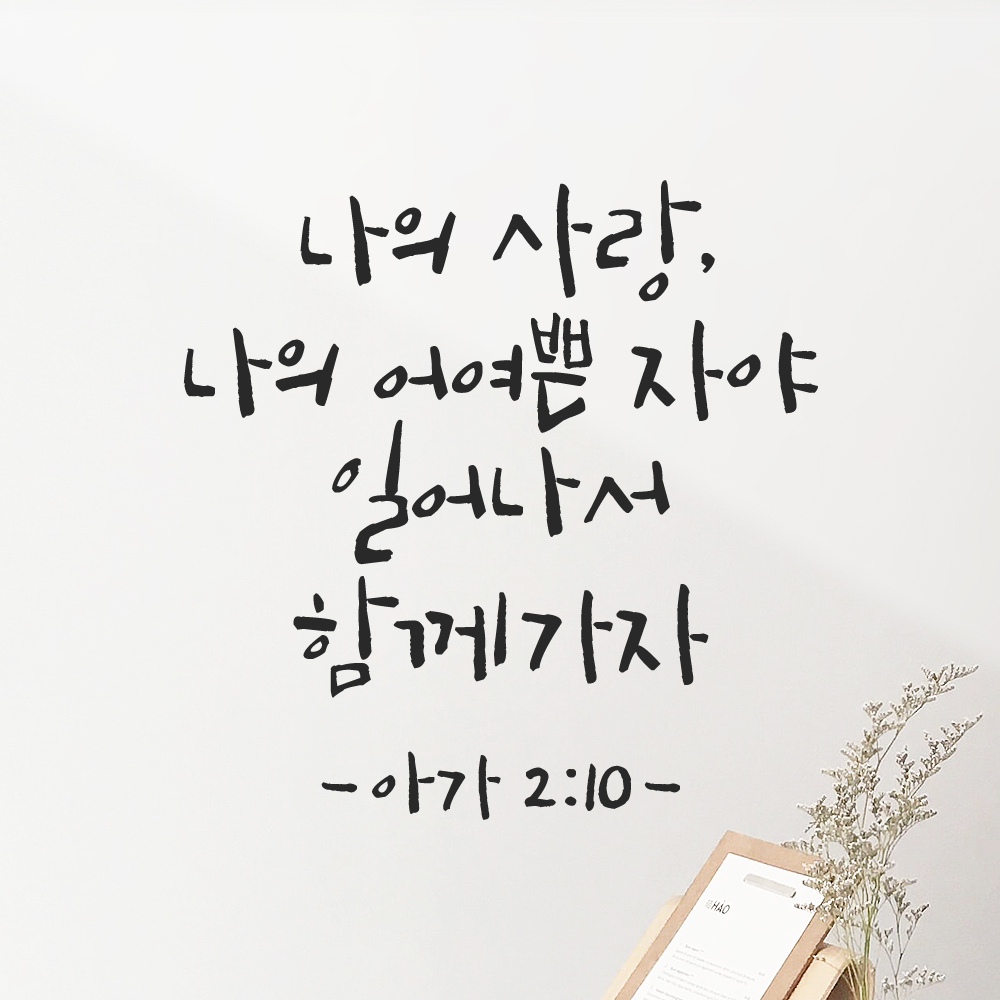 나의 사랑,
나의 어여쁜 자야
일어나서
함께가자
-아가 2:10-
HAO